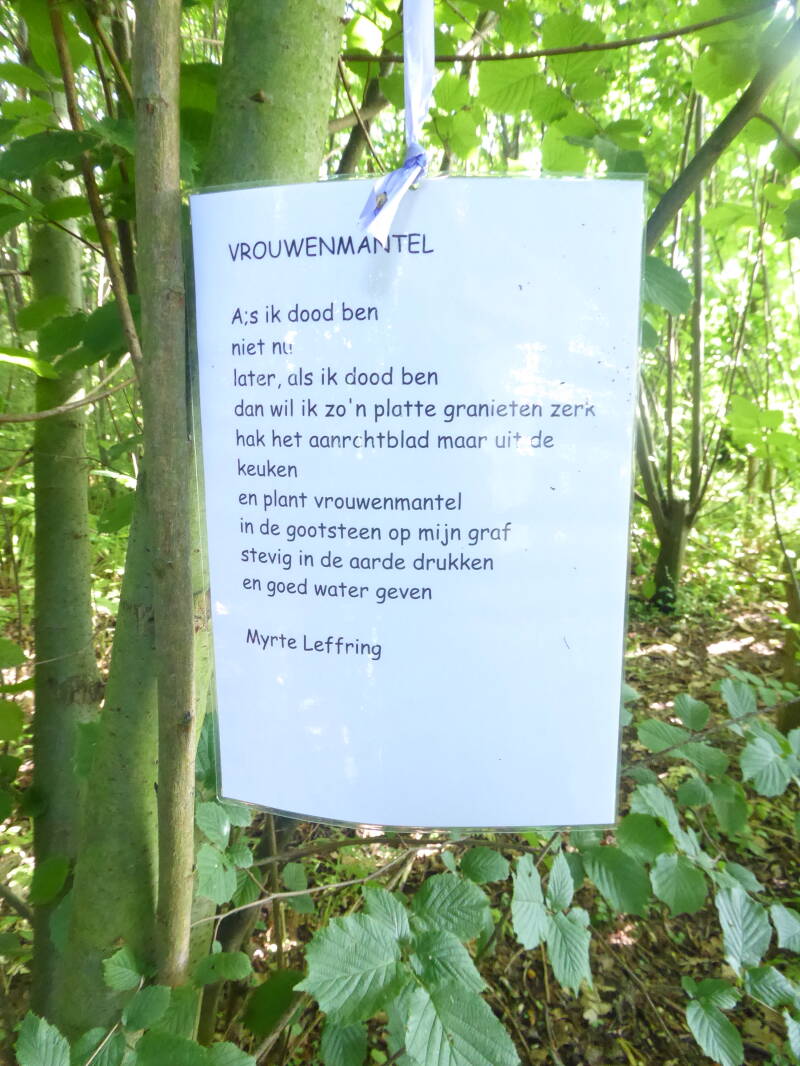 VROUWENMANTEL
A;s ik dood ben
niet nu
later, als ik dood ben
dan wil ik zo'n platte granieten zerk
hak het aanrchtblad maar uit de
keuken
en plant vrouwenmantel
in de gootsteen op mijn graf
stevig in de aarde drukken
en goed water geven
Myrte Leffring